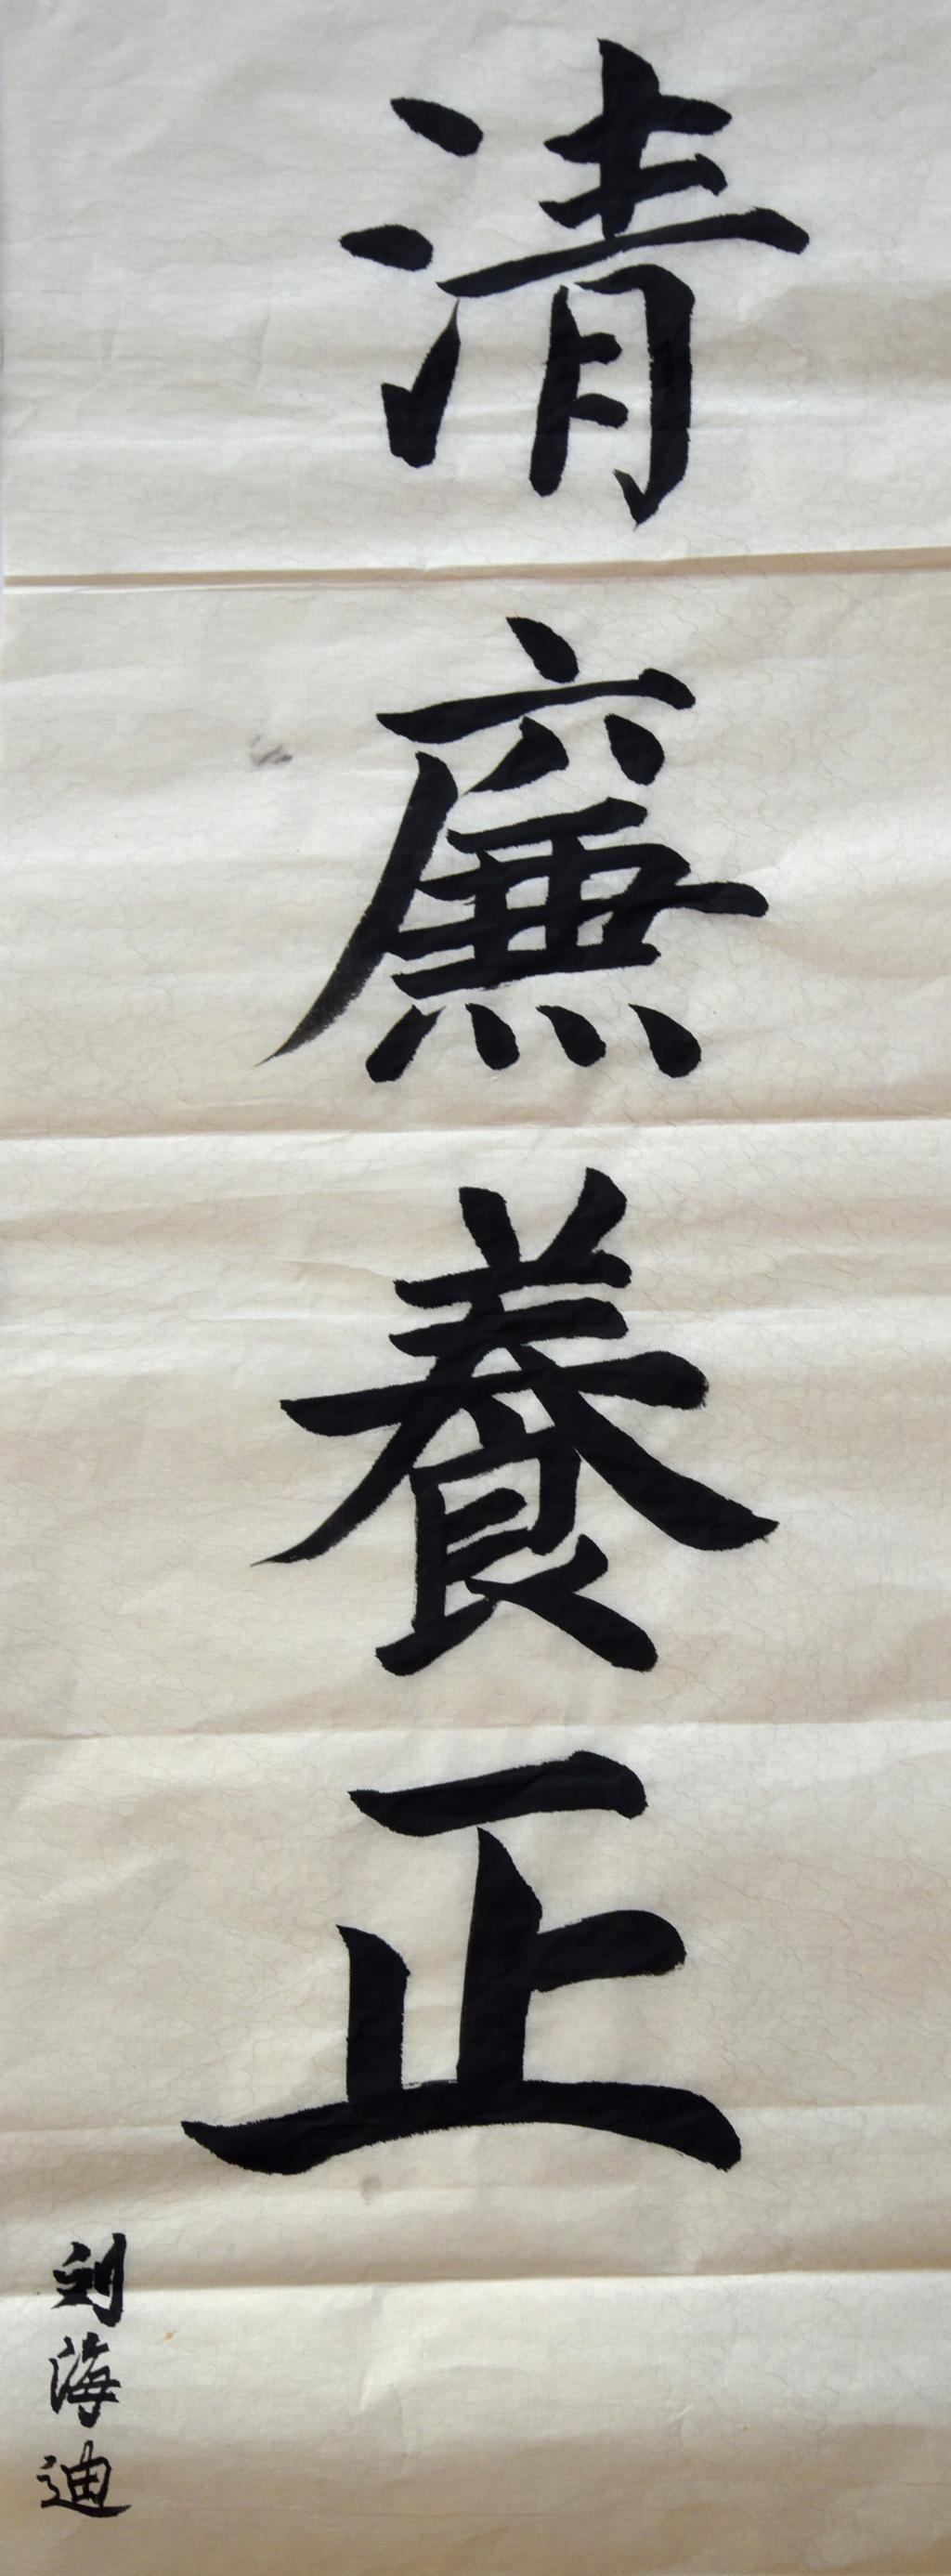 清廉養正
刘海迪